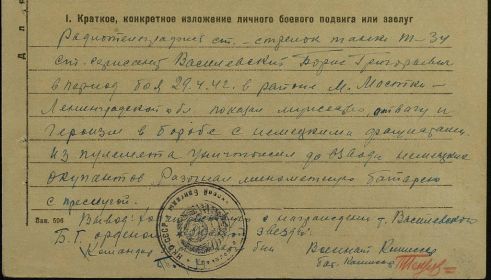 I. Краткое, конкретное изложение личного боевого подвига или заслуг
Радиотелеграфист ст. – стрелок танка Т-34
ст. сержант Василевский Борис Григорьевич
в период боя 29.4.42. в районе М. Мостки –
Ленинградской обл. показал мужество, отвагу и
Героизм в борьбе с немецкими фашистами.
Из пулемета уничтожил до взвода немецких
окупантов Разбита минометную батарею
с прислугой.
Зак. 506
Вывод: о награждении т. Василевского
Б. Г. орденом Звезды.
Командир б-на Военный Комиссар
бат. Комиссар